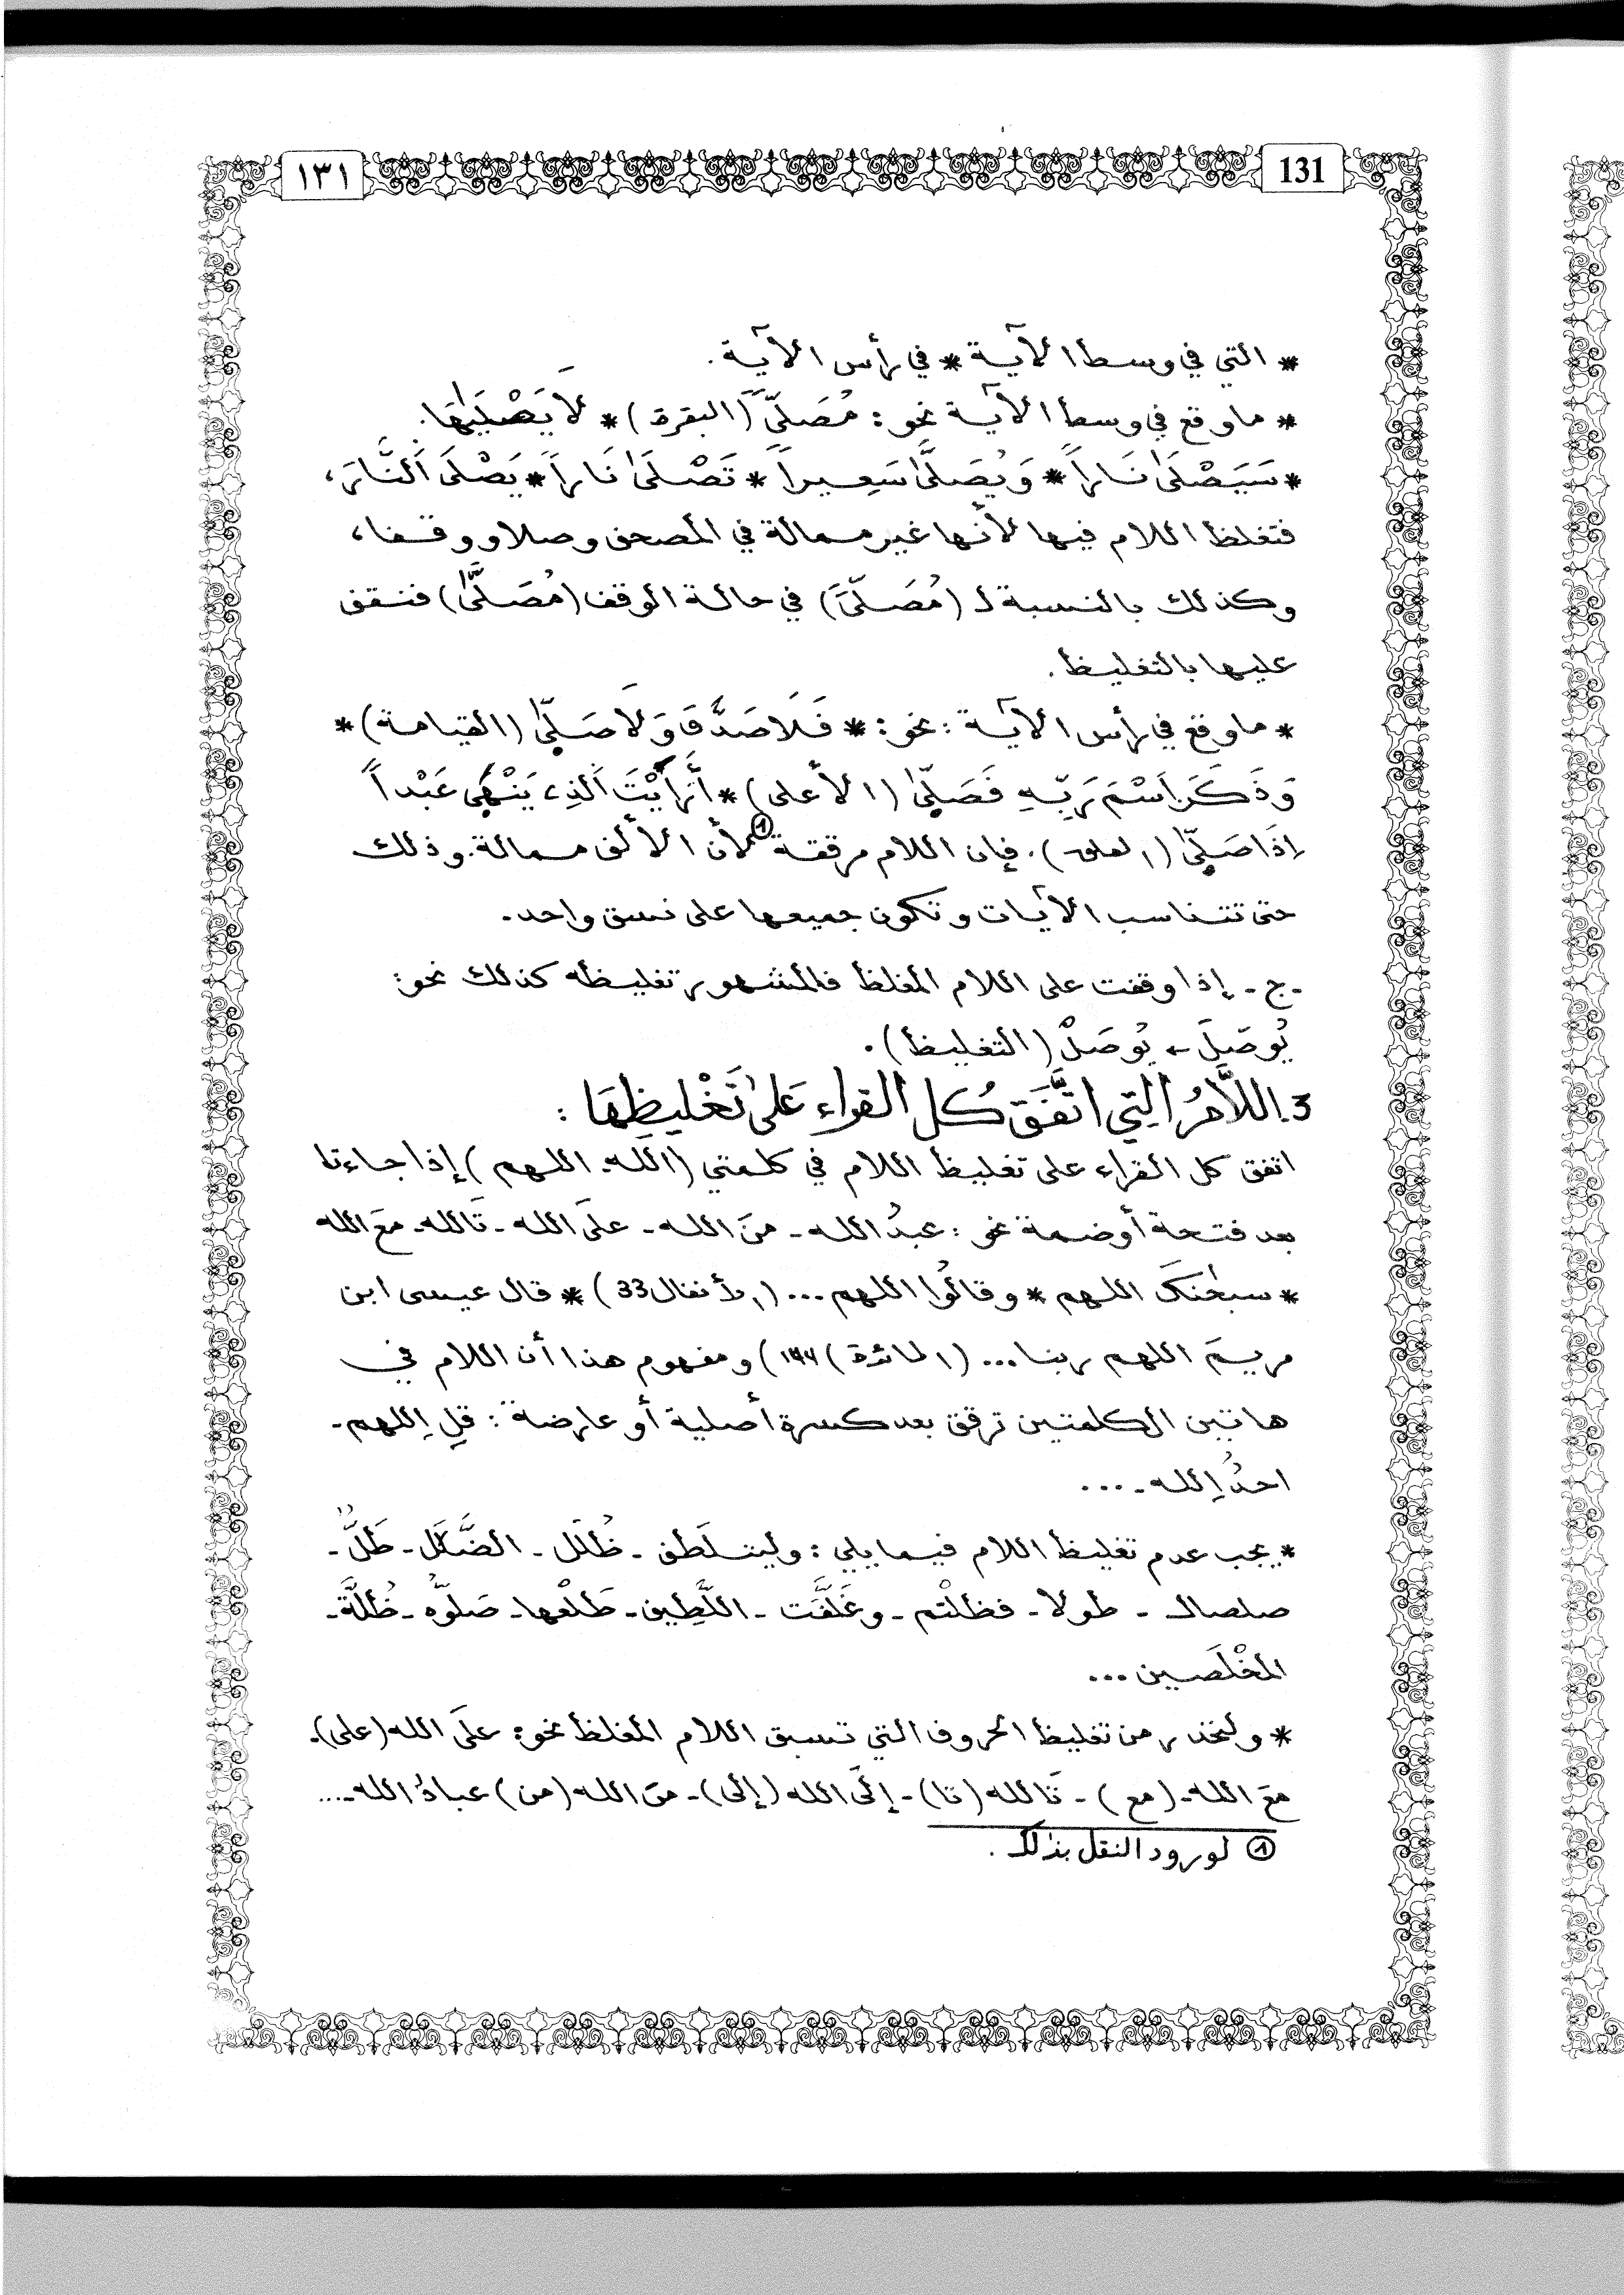 ١٣١ 131
* التي في وسط الآية * في رأس الآية.
* ما وقع في وسط الآية نحو: مُصَلّىً (البقرة) * لَا يَصْلَيٰهَا.
* سَيَصْلَىٰ نَاراً * وَيُصَلَّىٰ سَعِيراً * تَصْلَىٰ نَاراً * يَصْلَى اَلنَّارَ،
فتغلظ اللام فيها لأنها غير ممالة في المصحف وصلا ووقفا،
وكذلك بالنسبة لـ (مُصَلّىً) في حالة الوقف (مُصَلَّىٰ) فنقف
عليها بالتغليظ.
* ما وقع في رأس الآية: نحو: * فَلَا صَدَّقَ وَلَا صَلّىٰ (القيامة) *
وَذَكَرَ اَسْمَ رَبِّهِ فَصَلّىٰ (الأعلى) * أَرَٰيْتَ اَلذِے يَنْهىٰ عَبْداً
اِذَا صَلّىٰ (العلق). فإن اللام مرققة ① لأن الألف ممالة. وذلك
حتى تتناسب الآيات وتكون جميعها على نسق واحد.
- ج - إذا وقفت على اللام المغلظ فالمشهور تغليظه كذلك نحو:
يُوصَلَ ← يُوصَلْ (التغليظ).
3. اللَّامُ التِي اتَّفَقَ كُل القراء عَلىٰ تَغْلِيظِهَا :
اتفق كل القراء على تغليظ اللام في كلمتي (الله - اللهم) إذا جاءتا
بعد فتحة أو ضمة نحو: عبدُ الله - منَ الله - علَى الله - تَالله - معَ الله
* سبحٰنكَ اللهم * وقالُوا اللهم ... (الأنفال 33) * قال عيسى ابن
مريمَ اللهم ربنا ... (المائدة) ومفهوم هذا أن اللام في
هاتين الكلمتين ترقق بعد كسرة أصلية أو عارضة: قلِ اِللهم -
احدُ اِلله - ...
* يجب عدم تغليظ اللام فيما يلي: وليتلَطف - ظُلَل - الضَّلَٰل - طَلٌّ -
صلصال - طولا - فظلْتم - وغَلَّقَت - اللَّطِيف - طَلْعها - صَلُّوه - ظُلَّة -
المخْلَصين ...
* ولنحذر من تغليظ الحروف التي تسبق اللام المغلظ نحو: علَى الله (على) -
معَ الله - (مع) - تَالله (تا) - إلَى الله (إلى) - منَ الله (من) عبادُ الله - ...
① لورود النقل بذلك.